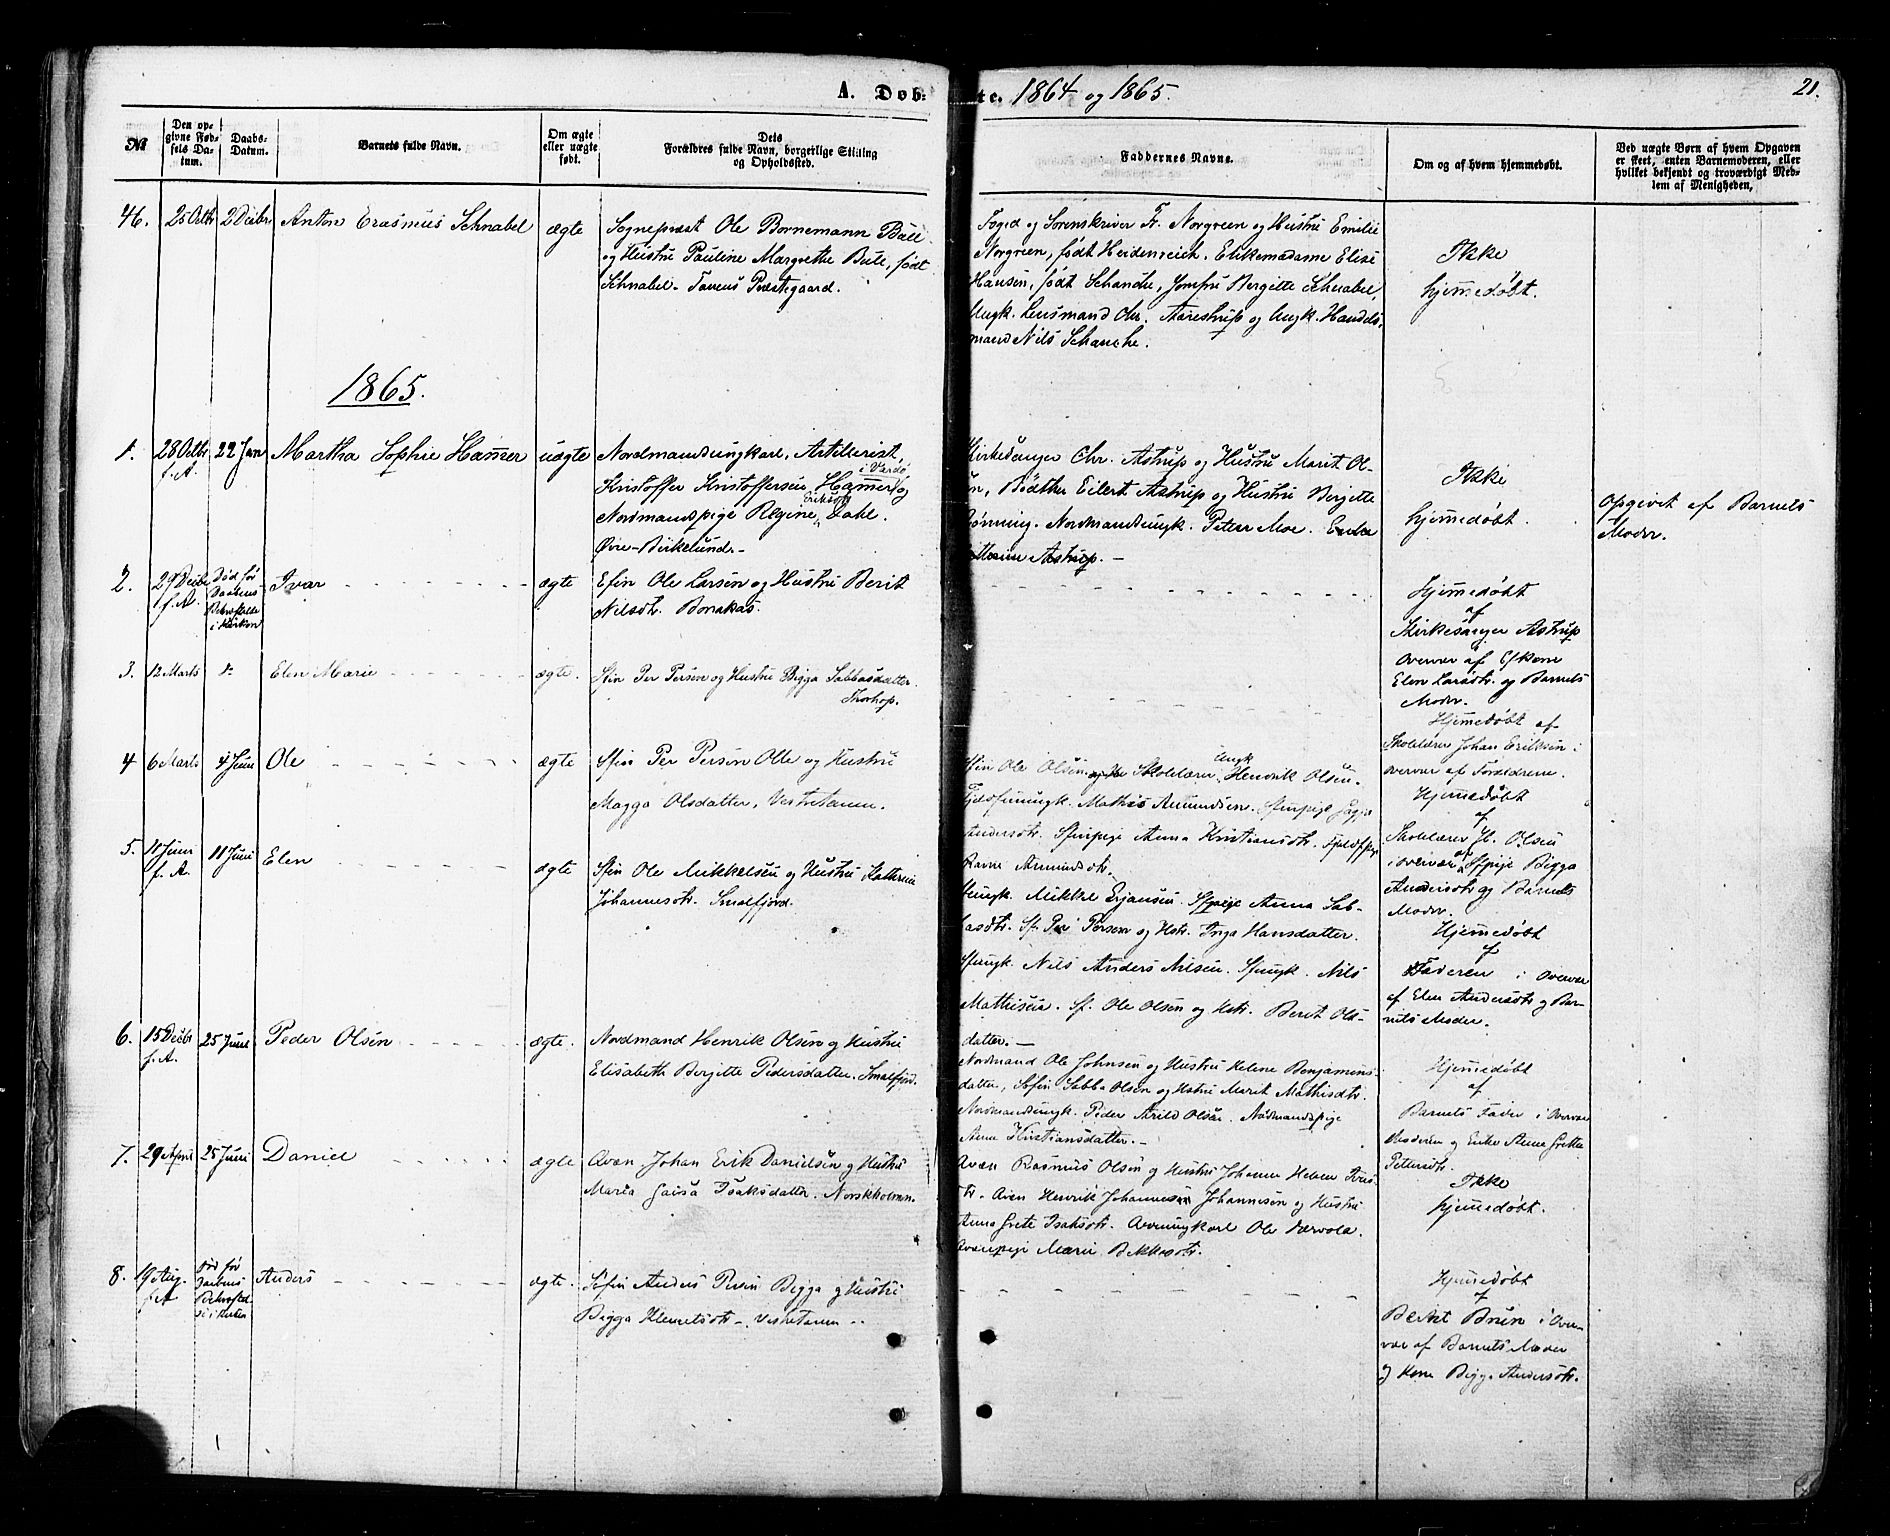 A. Døbte. 1864 og 1865.
21.
№
Den opgivne Fødsels Datum.
Daabs-Datum.
Barnets fulde Navn.
Om ægte eller uægte født.
Dets Forældres fulde Navn, borgerlige Stilling og Opholdssted.
Faddernes Navne.
Om og af hvem hjemmedøbt.
Ved uægte Børn af hvem Opgaven er skeet, enten Barnemoderen, eller hvilket bekjendt og troværdigt Medlem af Menigheden,
46. 25 Octbr 2 Decbr Anton Erasmus Schnabel ægte
Sognepræst Ole Bornemann Bull
og Hustru Pauline Margrethe Bull, født
Schnabel. Tanens Præstegaard.
Foged og Sorenskriver Fr. Norgreen og Hustru Emilie
Norgreen, født Heidenreich. Enkemadame Elise
Hansen, født Schanche, Jomfru Bergitte Schnabel,
Ungk. Lensmand Chr. Aarestrup og Ungk. Handels-
mand Nils Schanche.
Ikke
hjemmedøbt.
1865.
1. 28 Octbr f. A. 22 Jan Martha Sophie Hammer uægte
Nordmandsungkarl, Artillerist,
i Vardø
Kristoffer Kristoffersen Hammer og
Nordmandspige Regine Dahl.
Øvre-Birkelund.
Kirkesanger Chr. Astrup og Hustru Marit Ol-
sen, Eilert Astrup og Hustru Bergitte
Rønning. Nordmandsungk. Peter Moe. Enke
Astrup.
Ikke
hjemmedøbt.
Opgivet af Barnets
Moder.
2. 29 Decbr f. A. Død før Daabens Bekræftelse i Kirken Ivar ægte
Efin Ole Larsen og Hustru Berit
Nilsdtr. Bonakas.
Hjemmedøbt
af
Kirkesanger Astrup
overvær af
Elen Larsdtr. og Barnets
Moder.
3. 12 Marts Elen Marie ægte.
Sfin Per Persen og Hustru Bigga Sabbasdatter.
Torhop.
Hjemmedøbt af
Skolelærer Johan Eriksen i
overvær af Forældrene.
4 6 Marts 4 Juni Ole ægte
Sfin Per Persen Olle og Hustru
Magga Olsdatter, Vestertanen.
Sfin Ole Olsen Skolelærer Ungk Henrik Olsen.
Fjeldfinungk. Mathis Amundsen. Sfinpige
Andersdtr. Sfinpige Anna Kristiansdtr. Fjeldfpige
Ravne Amundsdtr.
Hjemmedøbt
af
Skolelærer H. Olsen
i overvær af Sfpige Bigga
Andersdtr og Barnets
Moder.
5. 11 Juni f. A. 11 Juni Elen ægte
Sfin Ole Mikkelsen og Hustru Kathrine
Johannesdtr. Smalfjord.
Mikkel Erjansen. Sfpige Anna Sab-
basdtr. Sf. Per Persen og Hstr. Inga Hansdatter.
Sfungk. Nils Anders Nilsen. Sfungk. Nils
Mathisen. Sf. Ole Olsen og Hstr. Berit Ols-
datter.
Hjemmedøbt
af
Faderen i overvær
af Elen Andersdtr og Bar-
nets Moder.
6. 15 Decbr f. A. 25 Juni Peder Olsen ægte.
Nordmand Henrik Olsen og Hustru
Elisabeth Bergitte Pedersdatter. Smalfjord.
Nordmand Ole Johnsen og Hustru Helene Benjamins-
datter, Søfin Sabba Olsen og Hstru Marit Mathisdtr.
Nordmandsungk. Peder Arild Olsen. Nordmandspige
Anne Kristiansdatter.
Hjemmedøbt
af
Barnets Fader i overvær
Moderen og Enke Anne Grethe
Pettersdtr.
7. 29 April 25 Juni Daniel ægte
Qvæn Johan Erik Danielsen og Hustru
Maria Isaksdatter. Norskholmen.
Qvæn Rasmus Olsen og Hustru Johanne Helene
Qvæn Henrik Johannesen og Hustru
Anna Grete Isaksdtr. Qvænungkarl Ole
Qvænpige Marie
Ikke
hjemmedøbt.
8. 19 Aug. f. A Død før Daabens Bekræftelse i Kirken Anders ægte.
Søfin Anders Persen Bigga og Hustru
Bigga Klemetsdtr. Vestertanen
Hjemmedøbt
af
Brun i over-
vær af Barnets Moder
og Kone Bigga Andersdtr.